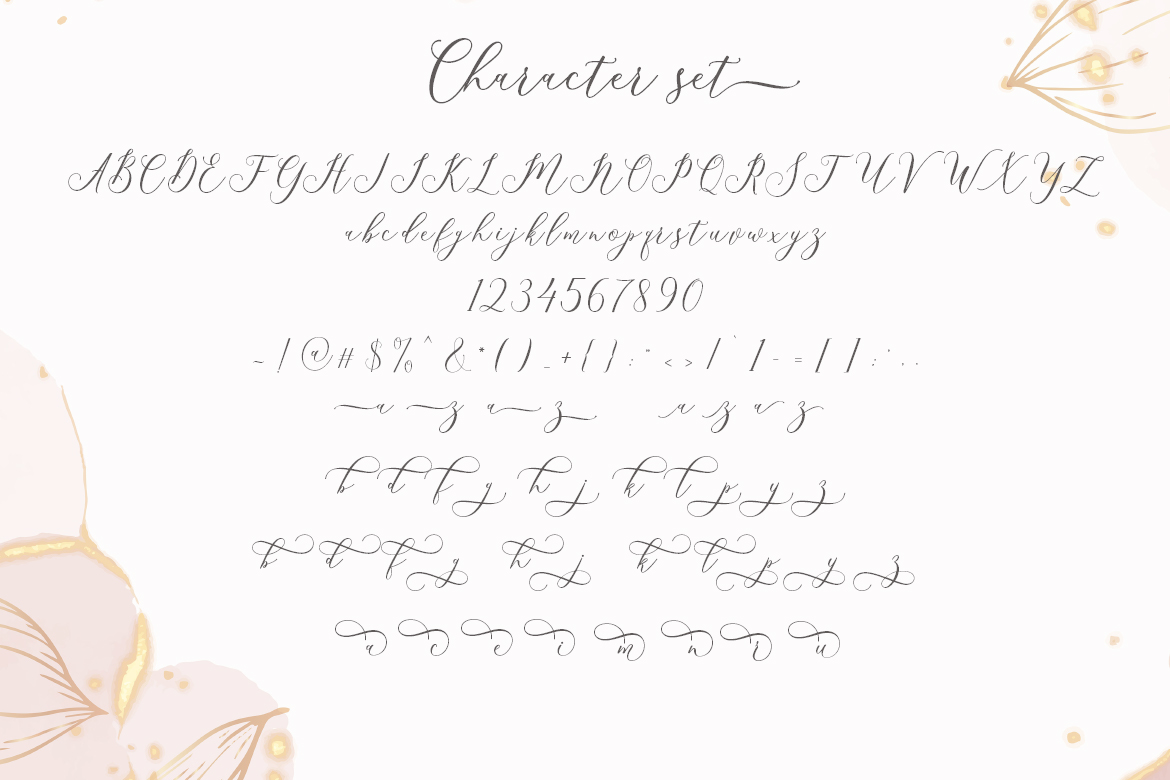 Character set
ABCDEFGHIJKLMNOPQRSTUVWXYZ
abcdefghijklmnopqrstuvwxyz
1234567890
~ ! @ # $ % ^ & * ( ) _ + { } : " < > / ` ] - = [ ] ; ' , .
a z a z a z a z
b d f g h j k l p y z
b d f g h j k l p y z
a c e i m n r u